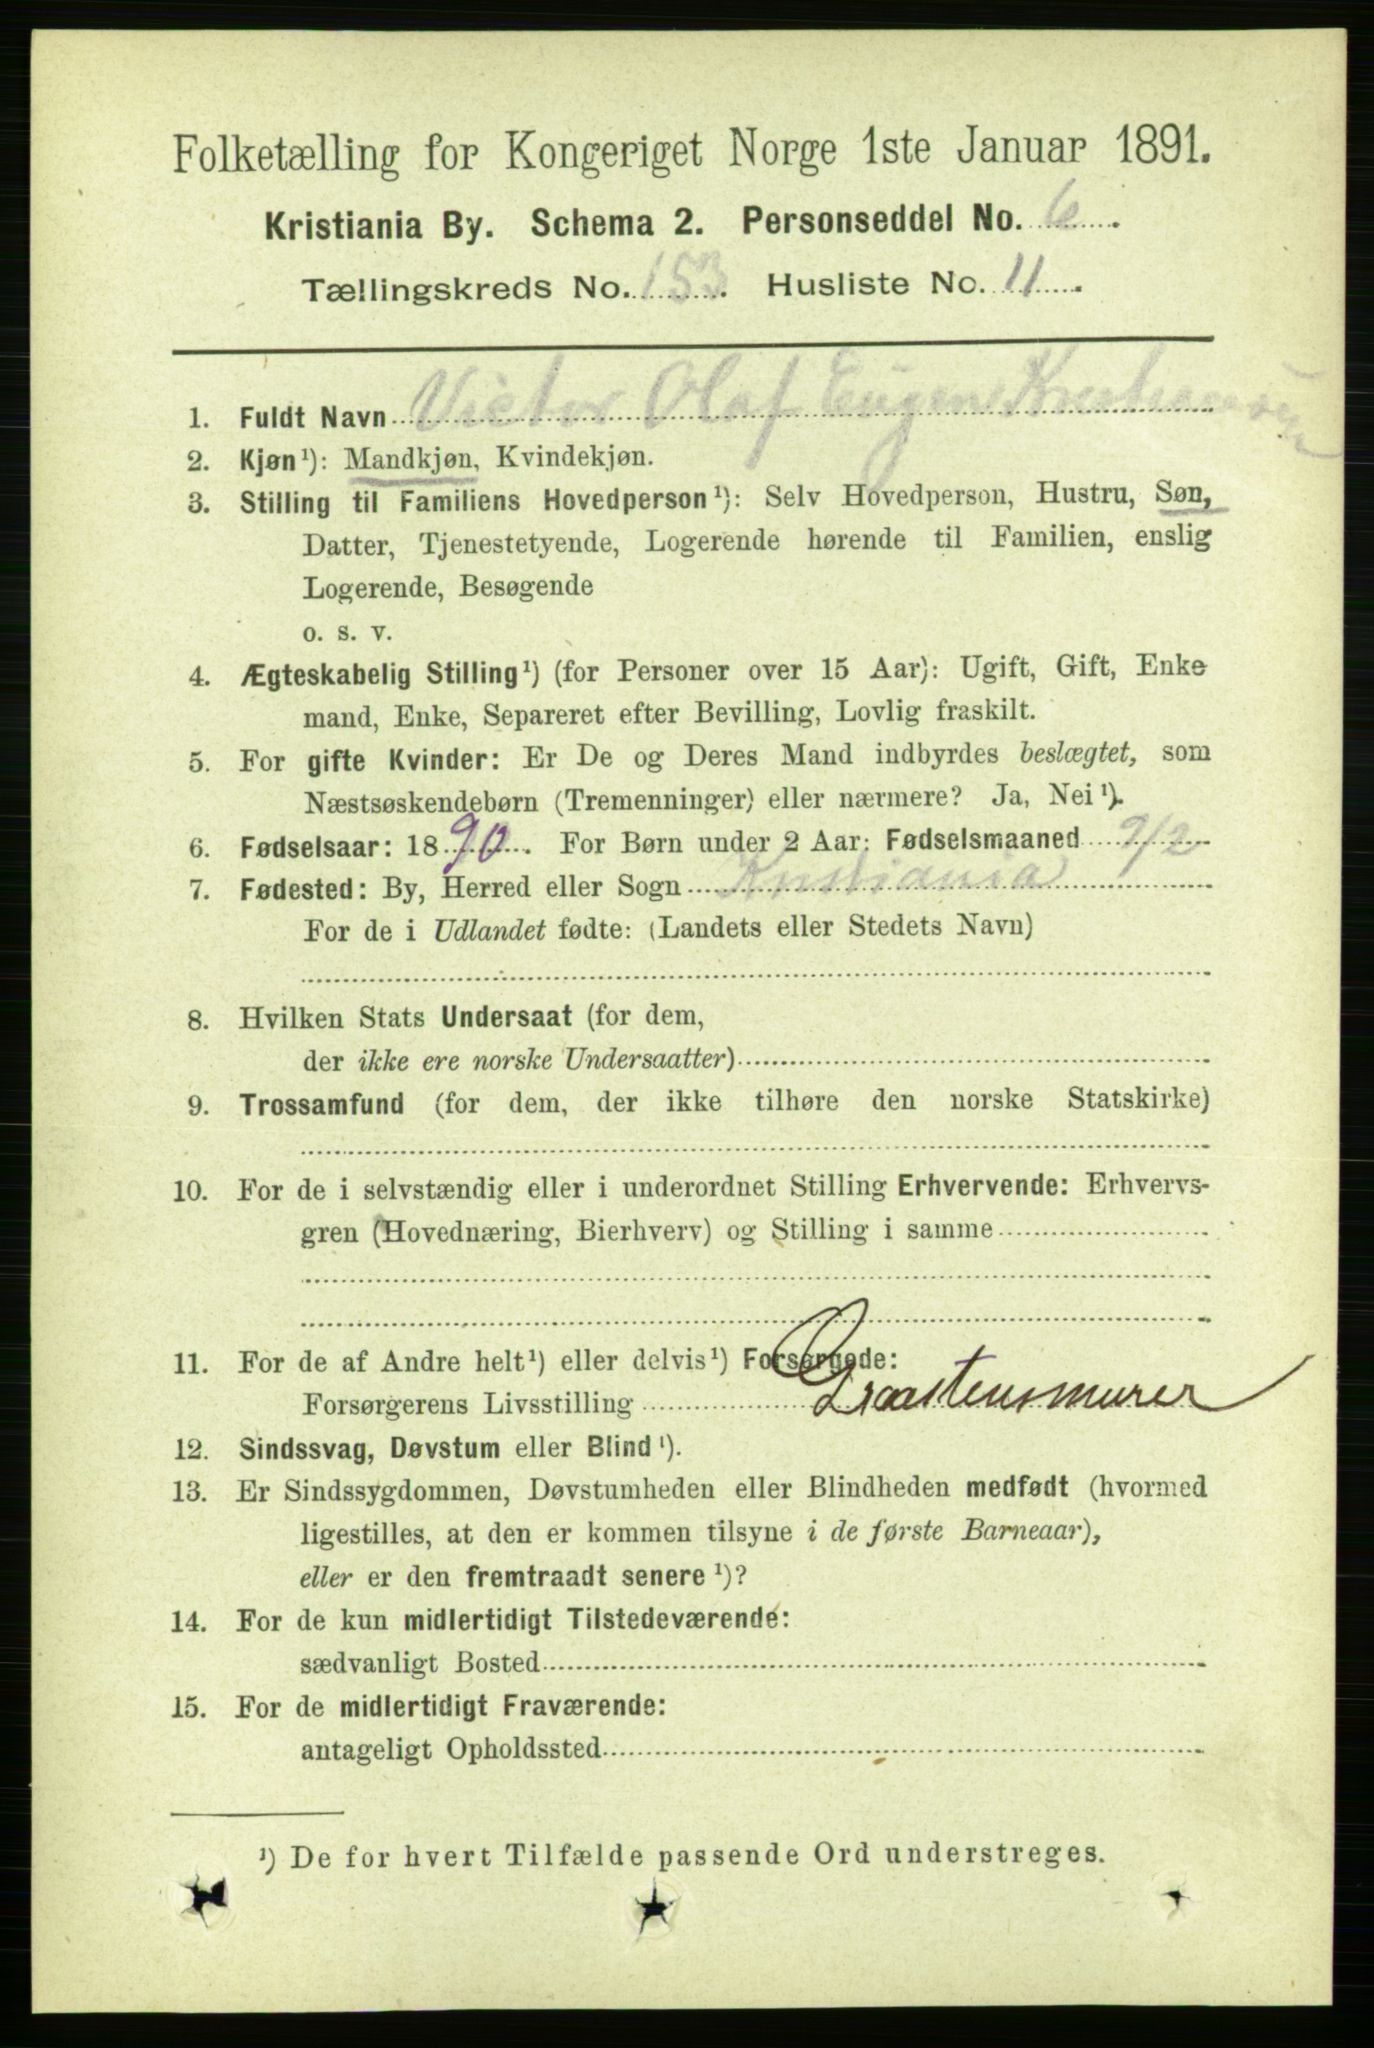 Folketælling for Kongeriget Norge 1ste Januar 1891.
Kristiania By. Schema 2. Personseddel No. 6.
Tællingskreds No. 153. Husliste No. 11.
1. Fuldt Navn Victor Olaf Eugen Kristiansen
2. Kjøn¹): Mandkjøn, Kvindekjøn.
3. Stilling til Familiens Hovedperson¹): Selv Hovedperson, Hustru, Søn,
Datter, Tjenestetyende, Logerende hørende til Familien, enslig
Logerende, Besøgende
o. s. v.
4. Ægteskabelig Stilling¹) (for Personer over 15 Aar): Ugift, Gift, Enke
mand, Enke, Separeret efter Bevilling, Lovlig fraskilt.
5. For gifte Kvinder: Er De og Deres Mand indbyrdes beslægtet, som
Næstsøskendebørn (Tremenninger) eller nærmere? Ja, Nei¹).
6. Fødselsaar: 1890. For Børn under 2 Aar: Fødselsmaaned 9/2
7. Fødested: By, Herred eller Sogn Kristiania
For de i Udlandet fødte: (Landets eller Stedets Navn)
8. Hvilken Stats Undersaat (for dem,
der ikke ere norske Undersaatter)
9. Trossamfund (for dem, der ikke tilhøre den norske Statskirke)
10. For de i selvstændig eller i underordnet Stilling Erhvervende: Erhvervs-
gren (Hovednæring, Bierhverv) og Stilling i samme
11. For de af Andre helt¹) eller delvis¹) Forsørgede:
Forsørgerens Livsstilling Graastensmurer
12. Sindssvag, Døvstum eller Blind¹).
13. Er Sindssygdommen, Døvstumheden eller Blindheden medfødt (hvormed
ligestilles, at den er kommen tilsyne i de første Barneaar),
eller er den fremtraadt senere¹)?
14. For de kun midlertidigt Tilstedeværende:
sædvanligt Bosted
15. For de midlertidigt Fraværende:
antageligt Opholdssted
¹) De for hvert Tilfælde passende Ord understreges.